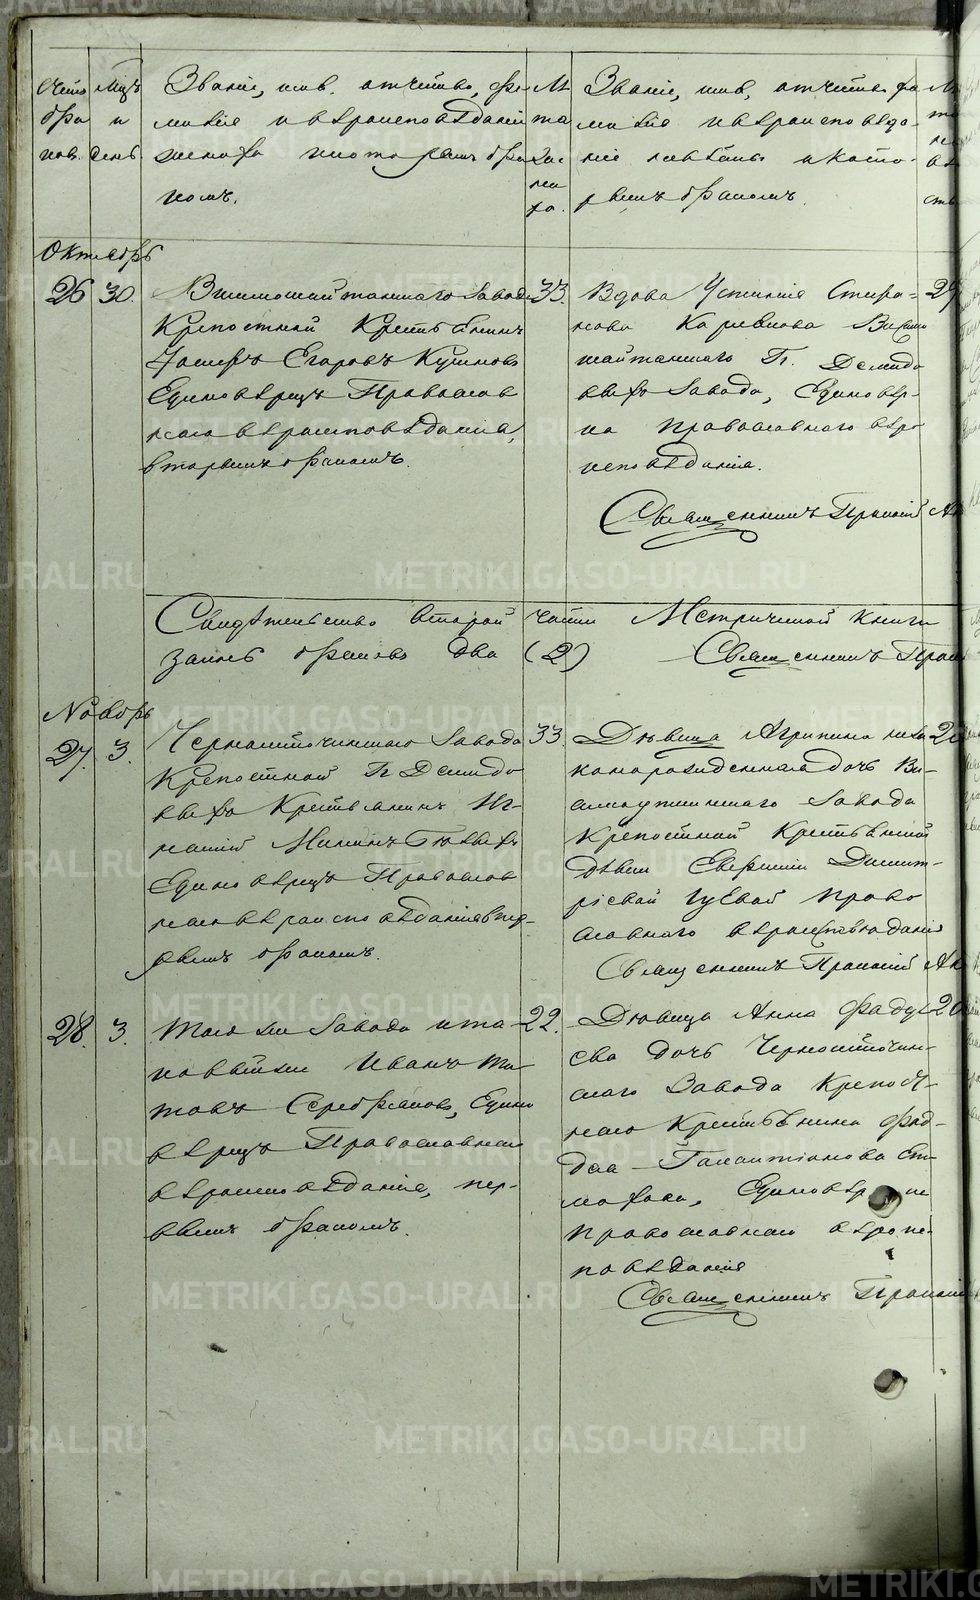 Счетъ
бра
ков.
Мцъ
и
день.
Званіе, имя, отчество, фа
милія и вѣроисповѣданіе
жениха и которымъ бра
комъ.
Лѣ
та
же
ни
ха.
Званіе, имя, отчество, фа
милія и вѣроисповѣда-
ніе невѣсты и кото-
рымъ бракомъ.
Октябрь
26 30.
Висимошайтанскаго завода
Крепостной Крестьянинъ
Егоровъ
Единовѣрецъ Православ
наго вѣроисповѣданія,
вторымъ бракомъ.
33.
Вдова Устинія Спири-
нова Висимо
шайтанскаго Гг. Демидо
выхъ завода, Единовѣр-
ка православнаго вѣро
исповѣданія.
Священникъ
Свидѣтельство второй части Метрической книги
запись браковъ два (2) Священникъ
Ноябрь
27. 3.
Черноисточинскаго завода
Крепостной Гг Демидо
выхъ Крестьянинъ Иг-
натій
Единовѣрецъ Православ
наго вѣроисповѣданія пер-
вымъ бракомъ.
33.
Дѣвица Агрипина неза
коннорожденная дочь Ви-
симоуткинскаго завода
Крепостной Крестьянской
дѣвки Евфиміи Димит-
ріевой Гуевой право
славнаго вѣроисповѣданія
Священникъ
28. 3.
Того же завода и та
ковой же Иванъ Ти-
товъ Серебряковъ, Едино
вѣрецъ Православнаго
вѣроисповѣданія, пер-
вымъ бракомъ.
22.
Дѣвица Анна Фадде 20
ева дочь Черноисточин-
скаго Завода Крепост-
наго Крестьянина Фад-
дея Галактіонова
Единовѣрка
православнаго вѣроис-
повѣданія
Священникъ
METRIKI.GASO-URAL.RU